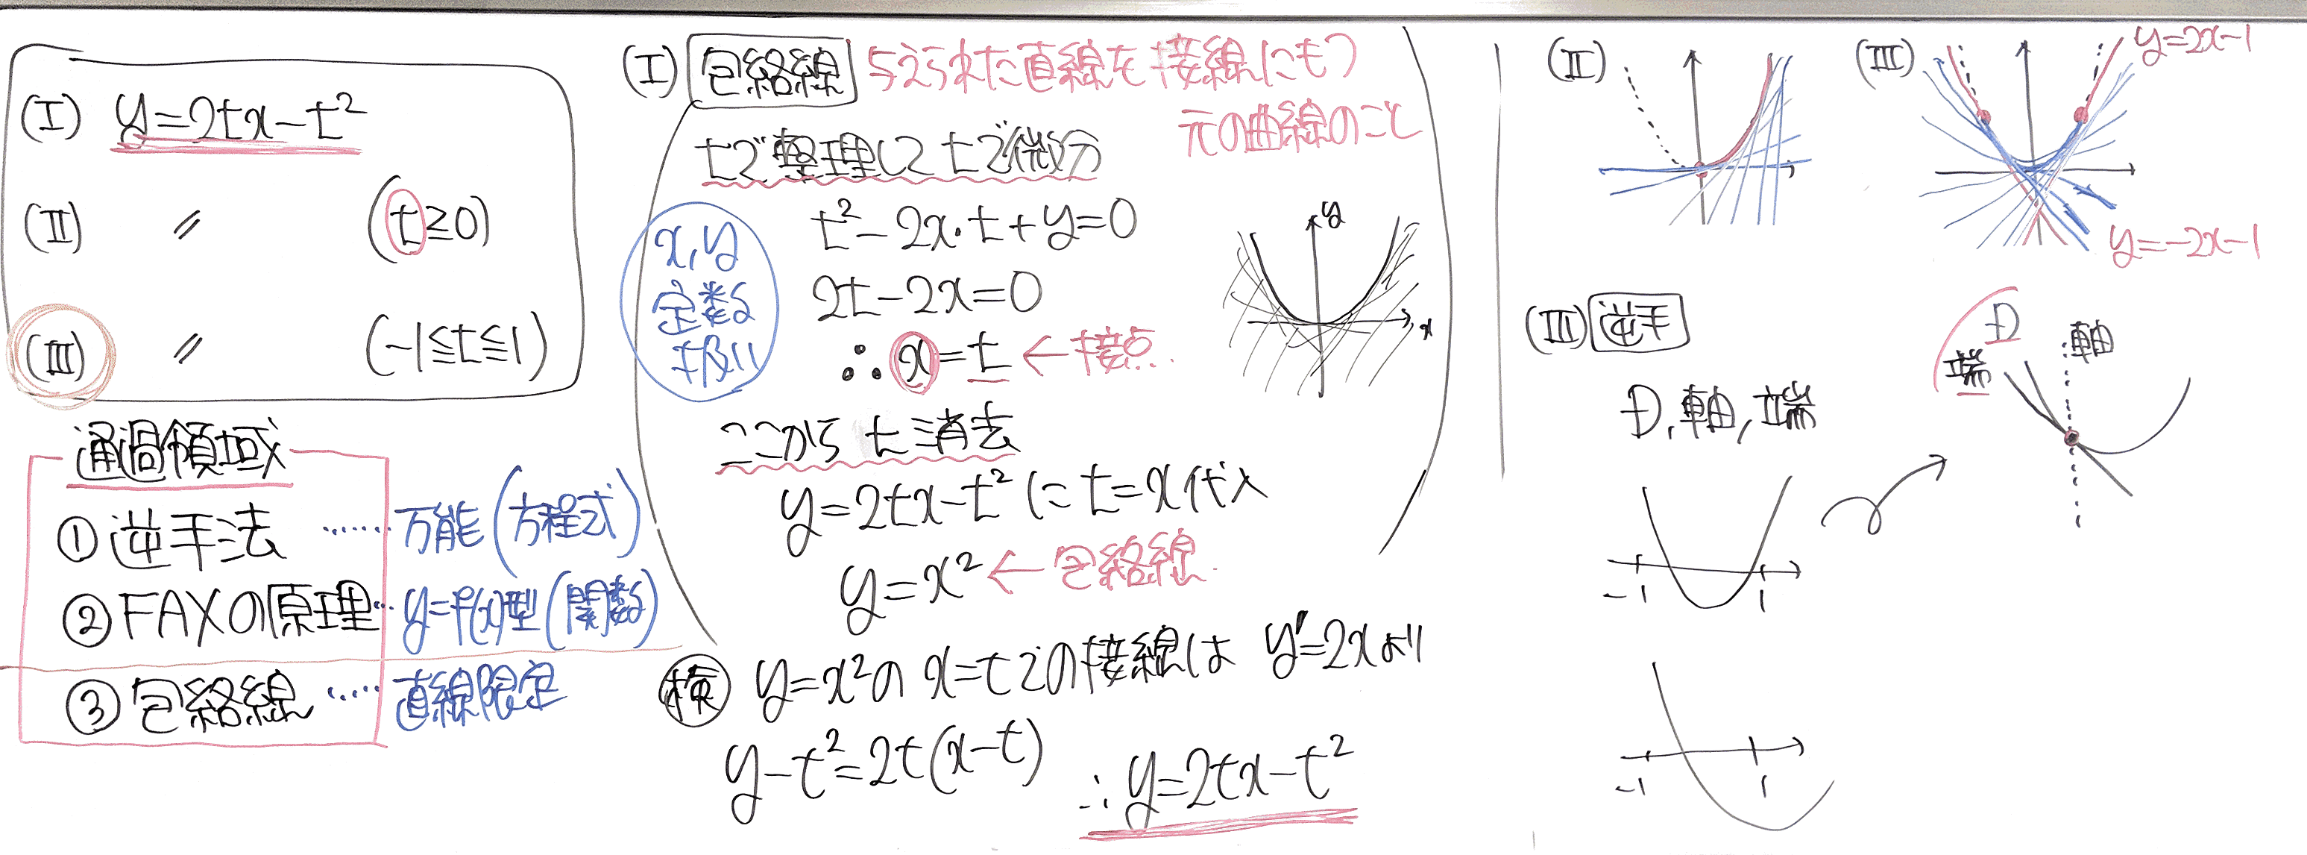 (I) y=2tx-t²
(II) 〃 (t≧0)
(III) 〃 (-1≦t≦1)
通過領域
① 逆手法 …… 万能(方程式)
② FAXの原理 … y=f(x)型(関数)
③ 包絡線 …… 直線限定
(I) 包絡線 与えられた直線を接線にもつ
元の曲線のこと
tで整理してtで微分
x,y
定数
扱い
t²-2x・t+y=0
2t-2x=0
∴x=t ←接点
y
x
ここからt消去
y=2tx-t²にt=x代入
y=x² ←包絡線
検 y=x²のx=tでの接線は y'=2xより
y-t²=2t(x-t) ∴y=2tx-t²
(II)
(III)
y=2x-1
y=-2x-1
(III) 逆手
D, 軸, 端
-1 1
-1 1
D
端
軸